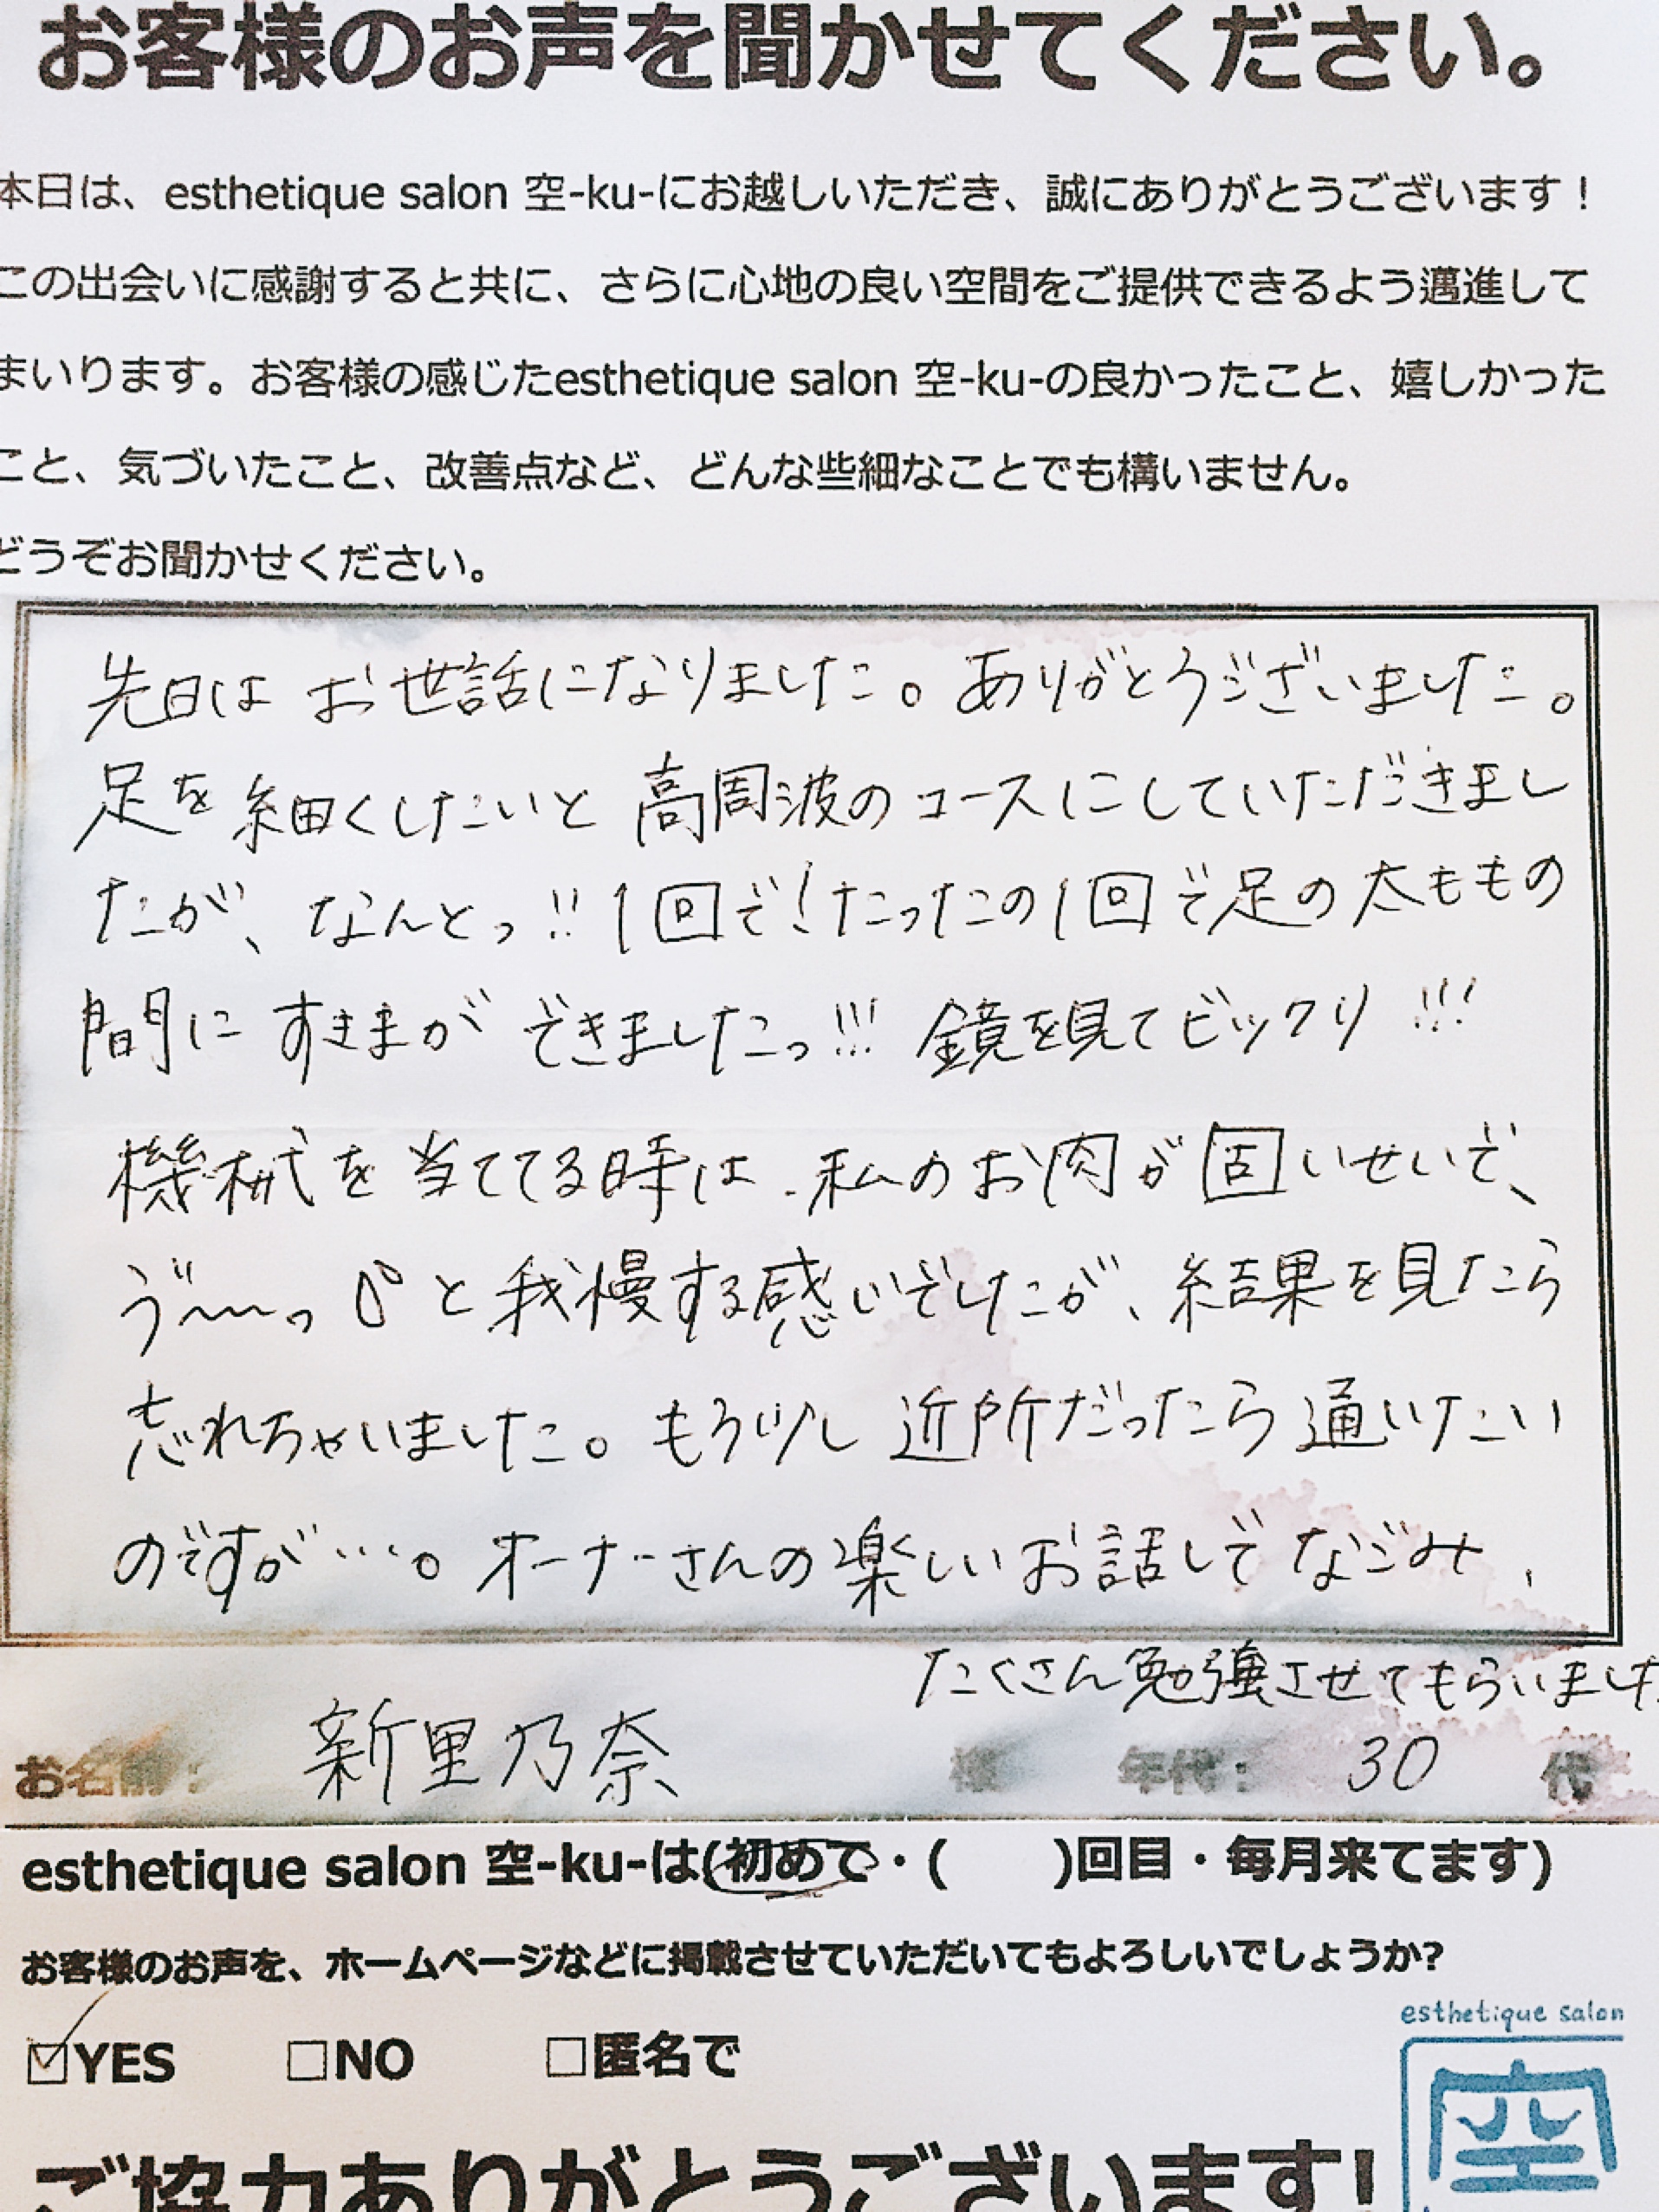 お客様のお声を聞かせてください。
本日は、esthetique salon 空-ku-にお越しいただき、誠にありがとうございます！
この出会いに感謝すると共に、さらに心地の良い空間をご提供できるよう邁進して
まいります。お客様の感じたesthetique salon 空-ku-の良かったこと、嬉しかった
こと、気づいたこと、改善点など、どんな些細なことでも構いません。
どうぞお聞かせください。
先日は お世話になりました。ありがとうございました。
足を 細くしたいと 高周波のコースにしていただきまし
たが、なんとっ!! 1回で！たったの1回で足の太ももの
間に すきまが できましたっ!!! 鏡を見てビックリ!!!
機械を当ててる時は、私のお肉が固いせいで、
ゔ〜〜っ と我慢する感じでしたが、結果を見たら
忘れちゃいました。もう少し 近所だったら通いたい
のですが…。オーナーさんの楽しいお話しでなごみ、
たくさん勉強させてもらいました
お名前： 新里乃奈 様 年代： 30 代
esthetique salon 空-ku-は(初めて・( )回目・毎月来てます)
お客様のお声を、ホームページなどに掲載させていただいてもよろしいでしょうか?
☑YES □NO □匿名で
esthetique salon
空
ご協力ありがとうございます!